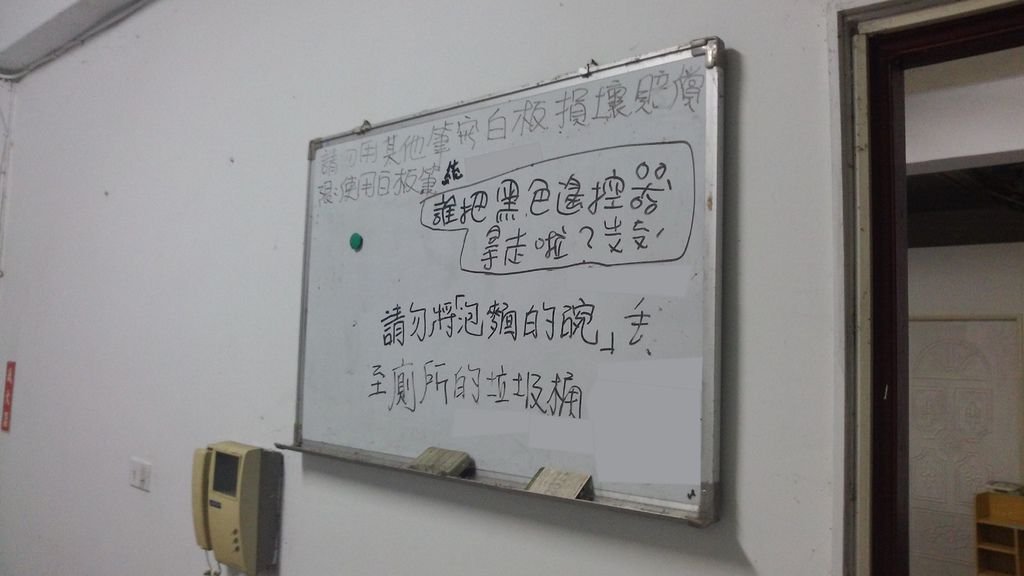 請勿用其他筆寫白板損壞賠償
限使用白板筆
誰把黑色遙控器
拿走啦？
請勿將「泡麵的碗」丟
至廁所的垃圾桶